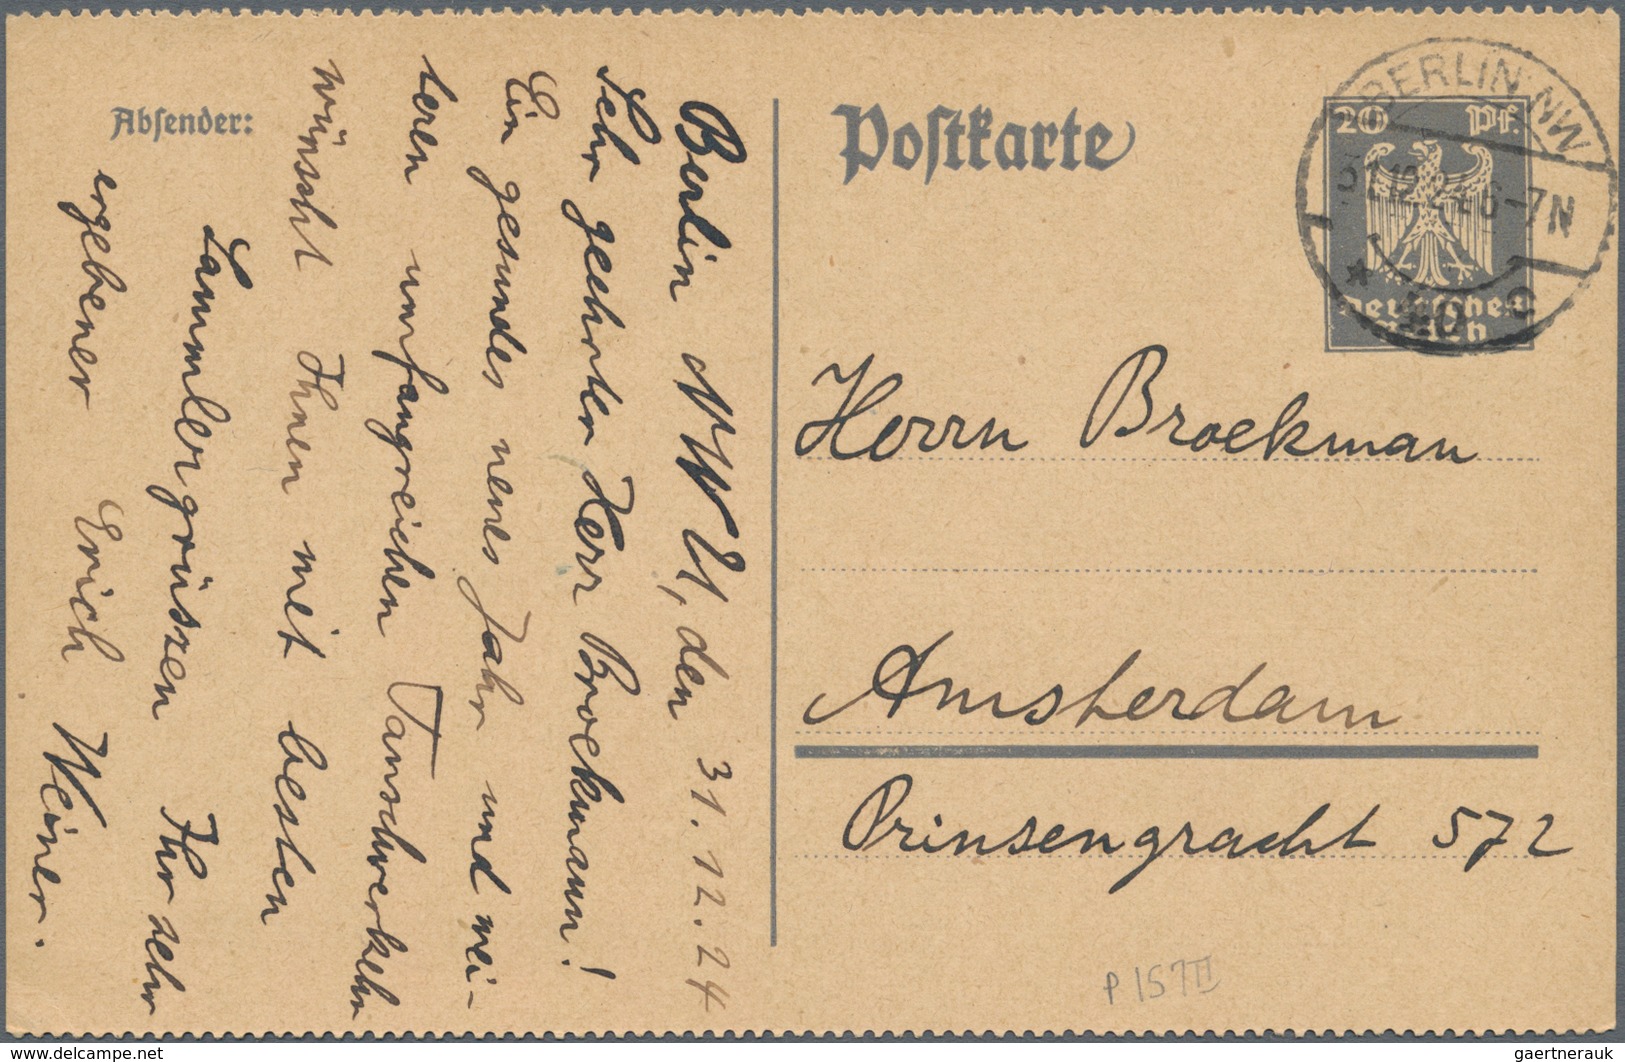 Absender:
Berlin NW 21, den 31.12.24
Sehr geehrter Herr Brockmann!
Ein gesundes neues Jahr und wei-
teren umfangreichen Tauschverkehr
wünscht Ihnen mit besten
Sammlergrüszen Ihr sehr
ergebener Erich Weiner.
Postkarte
20 Pf.
Deutsches
Reich
BERLIN NW
31.12.24 6-7N
* 40 c
Herrn Brockman
Amsterdam
Prinsengracht 572
P 157 II
www.delcampe.net
gaertnerauk